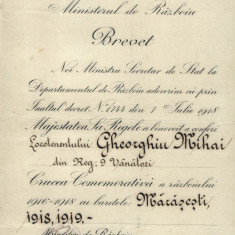 Ministerul de Războiu
Brevet
Noi Ministru Secretar de Stat la
Departamentul de Războiu adeverim că prin
Inaltul decret No 1744 din 7 Iulie 1918
Majestatea Sa Regele a binevoit a conferi
Locotenentului Gheorghiu Mihai
din Reg. 9 Vânători
Crucea Comemorativă a războiului
1916-1918 cu baretele Mărăşeşti,
1918, 1919.-
de Războiu